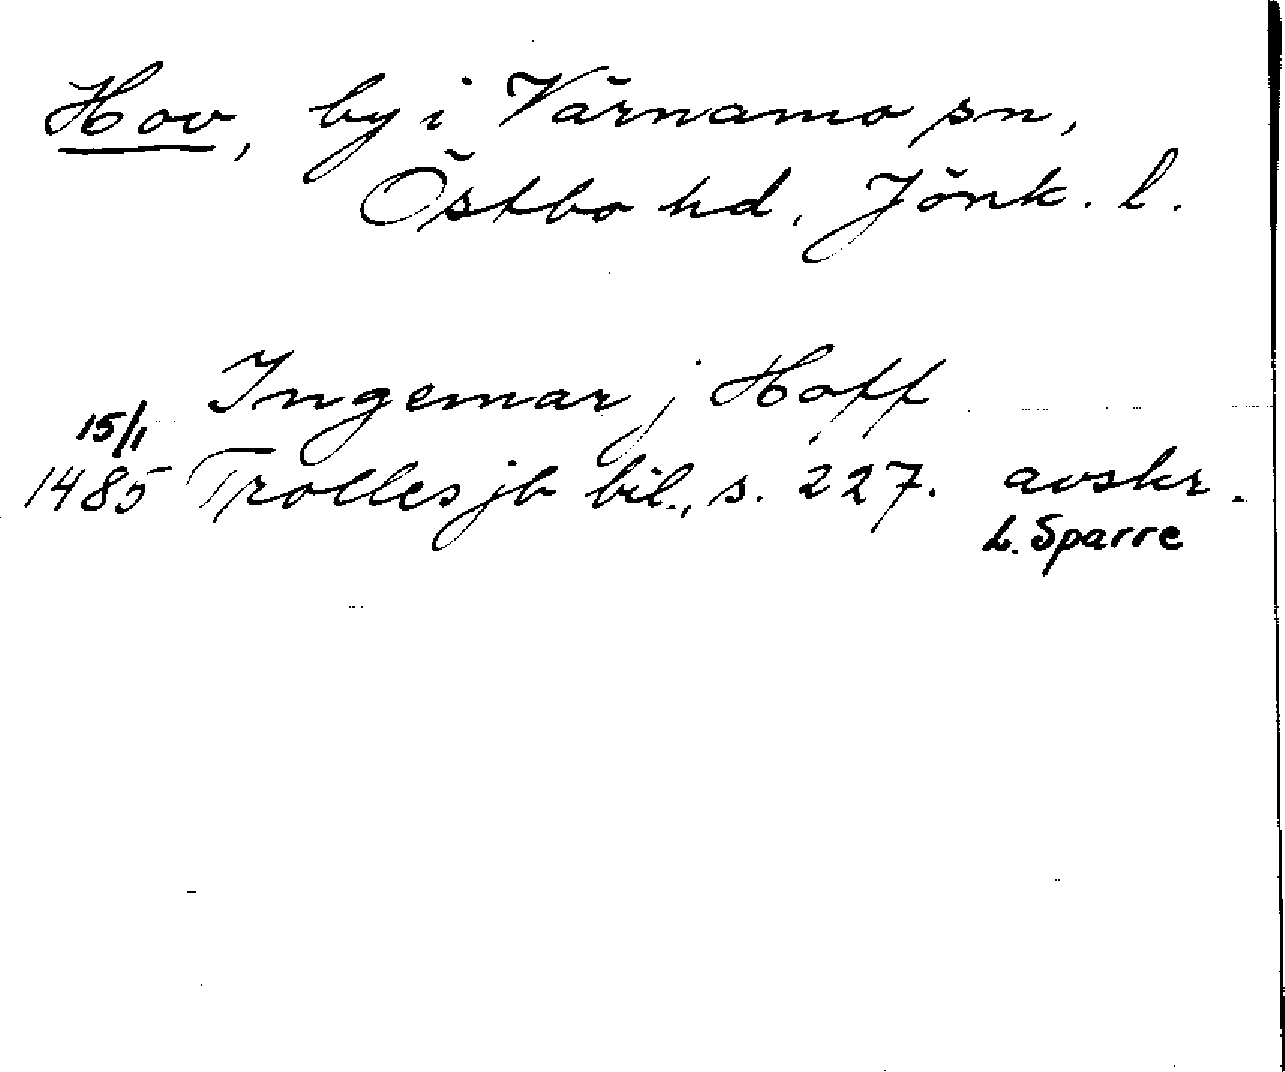 Hov, by i Värnamo sn,
Östbo hd, Jönk. l.
Ingemar j Hoff
15/1
1485 Trolles jb bil., s. 227. avskr.
L. Sparre